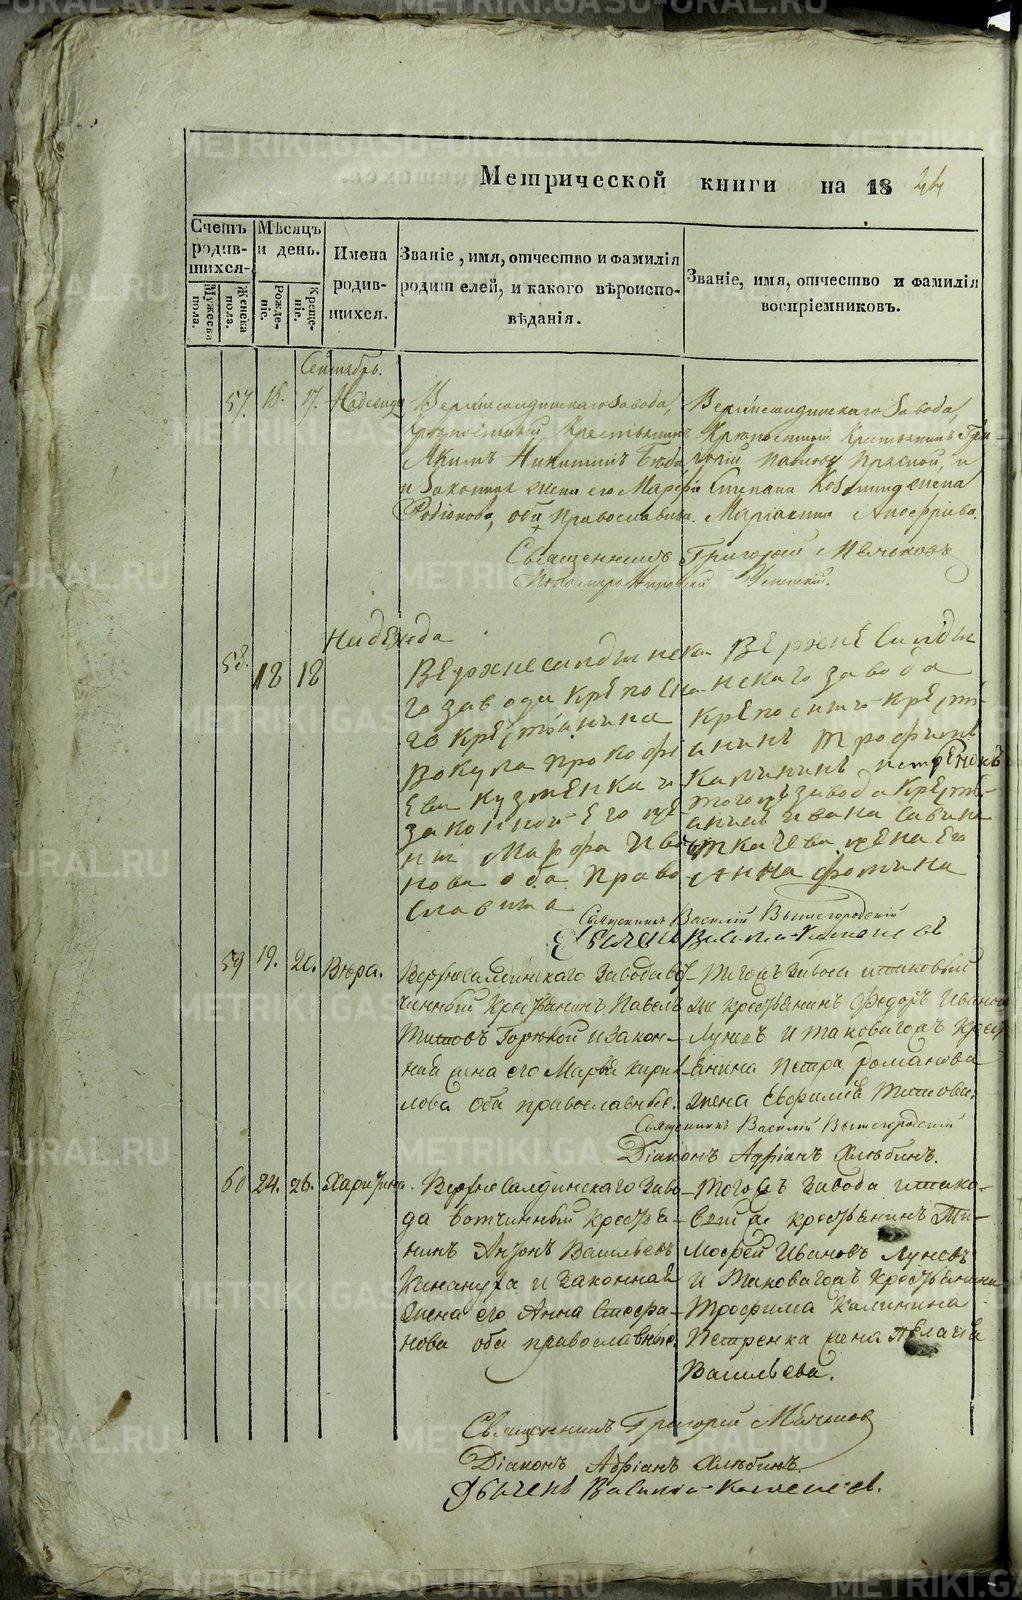 Метрической книги на 18
Счетъ родив-шихся.
Мѣсяцъ и день.
Имена родив-шихся.
Званіе, имя, отчество и фамилія родителей, и какого вѣроиспо-вѣданія.
Званіе, имя, отчество и фамилія воспріемниковъ.
Мужеска пола.
Женска пола.
Рожде-ніе.
Креще-ніе.
Сентябрь.
57. 16. 17. Надежда
Верхнесалдинскаго Завода,
Крѣпостный Крестьянинъ
Акимъ Никитинъ
и Законная жена его Марфа
Родіонова, оба Православные.
Верхнесалдинскаго Завода,
Крѣпостный Крестьянинъ Гри-
горій Павловъ и
Степана Козмина жена
Священникъ Григорій
58. 18 18
Надежда
Верхнесалдинска-
го завода крепосна-
го крестьянина
Вокула прокофи-
ева кузменка и
законной его же-
ни Марфа Ива-
нова оба право
славита
Верхне Салди
нскаго завода
крепоснаго кресть-
анинъ трофимъ
Калининъ петренокъ
тогожъ завода кресть-
анина ивана Савина
ткачева жена его
Анна фомина
Священникъ Василій Вышегородскій
59 19. 21. Вѣра.
Верхнесалдинскаго Завода вот-
чинный Крестьянинъ Павелъ
Титовъ Горюной и закон-
ная жена его Марья Кирил-
лова оба православные.
Тогожъ Завода и таковый
же крестьянинъ Федоръ Ивановъ
Луневъ и таковагожъ крест
янина Петра Романова
жена Евфимія Титова.
Священникъ Василій Вышегородскій
Діаконъ Адріанъ Хлѣбинъ.
60 24. 26. Харитина.
Верхне Салдинскаго Заво-
да вотчинный крестья-
нинъ Антонъ Васильевъ
и законная
жена его Анна Стефа-
нова оба православные.
Тогожъ Завода и тако-
вый же крестьянинъ Ти-
мофей Ивановъ Луневъ
и таковагожъ крестьянина
Трофима Калинина
Петренка жена Пелагія
Васильева.
Священникъ Григорій
Діаконъ Адріанъ Хлѣбинъ.
METRIKI.GASO-URAL.RU